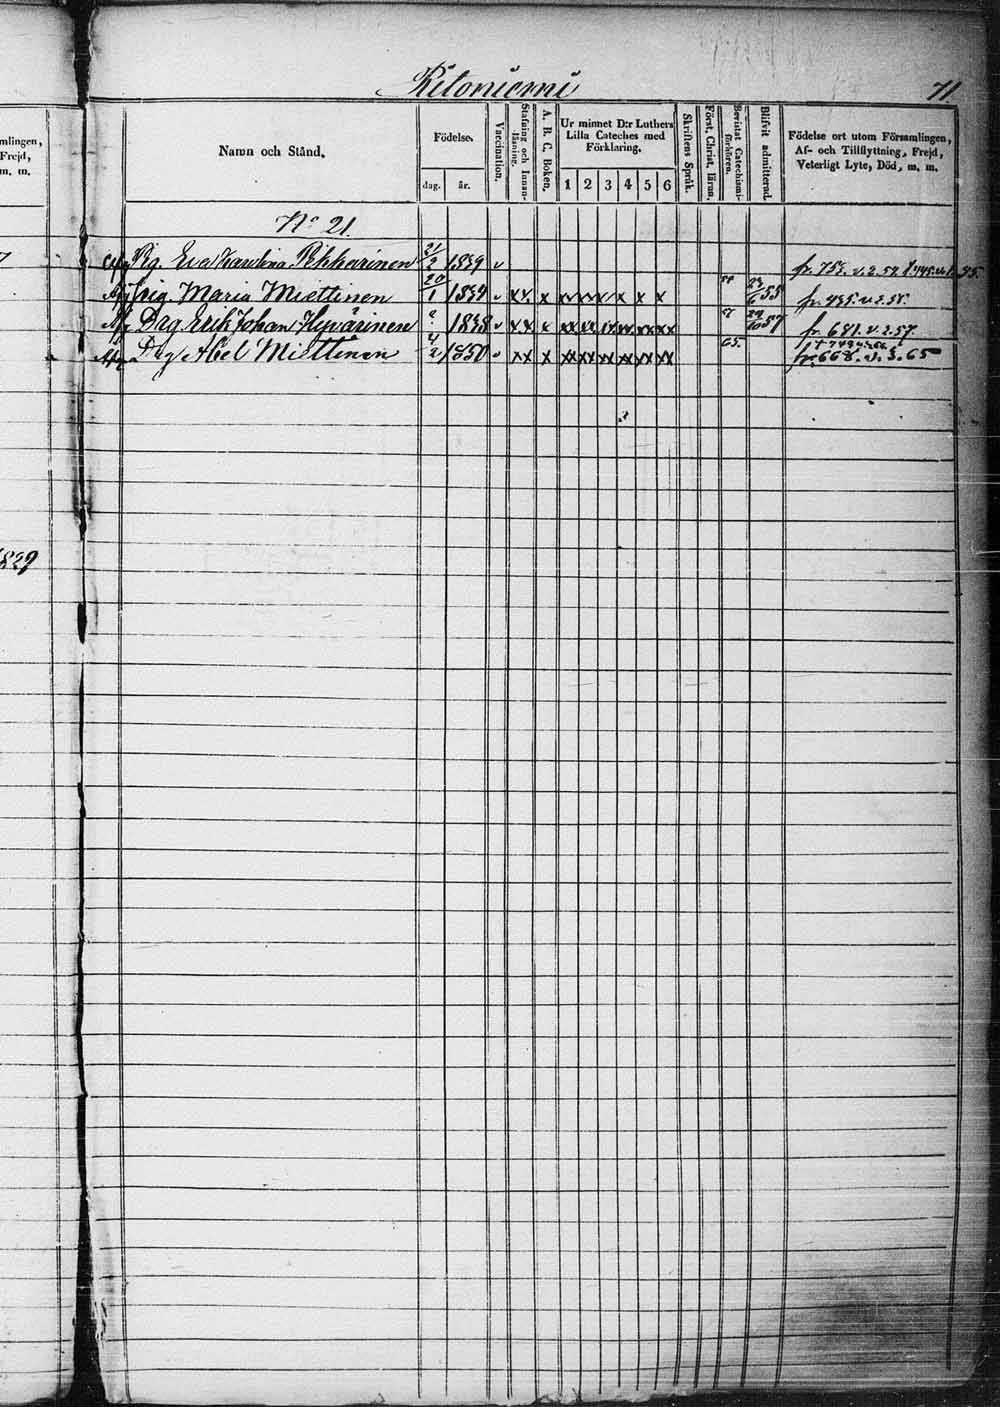 Kiloniemi 71
mlingen,
Frejd,
m. m.
Namn och Stånd.
Födelse.
dag. år.
Vaccination.
Stafning och Innan-läsning.
A. B. C. Boken.
Ur minnet D:r Luthers
Lilla Cateches med
Förklaring.
1 2 3 4 5 6
Skriftens Språk.
Först. Christ. läran.
Bevistat Catechismi-förhören.
Blifvit admitterad.
Födelse ort utom Församlingen,
Af- och Tillflyttning, Frejd,
Veterligt Lyte, Död, m. m.
No 21.
Pig. Eva Karolina Pekkarinen 21/2 1839 v fr. 753. v. 2. 57.
Pig. Maria Miettinen 20/1 1834 v xx x x x x x x x 58 55 fr. 435. v. 2. 58.
Drg Erik Johan Hyvärinen 1838 v xx x xx xx xx xx xx xx 57 57 fr. 681. v. 2. 57.
Drg Abel Miettinen 4/2 1850 v xx x xx xx xx xx xx xx 65. fr. 668. v. 3. 65
1829